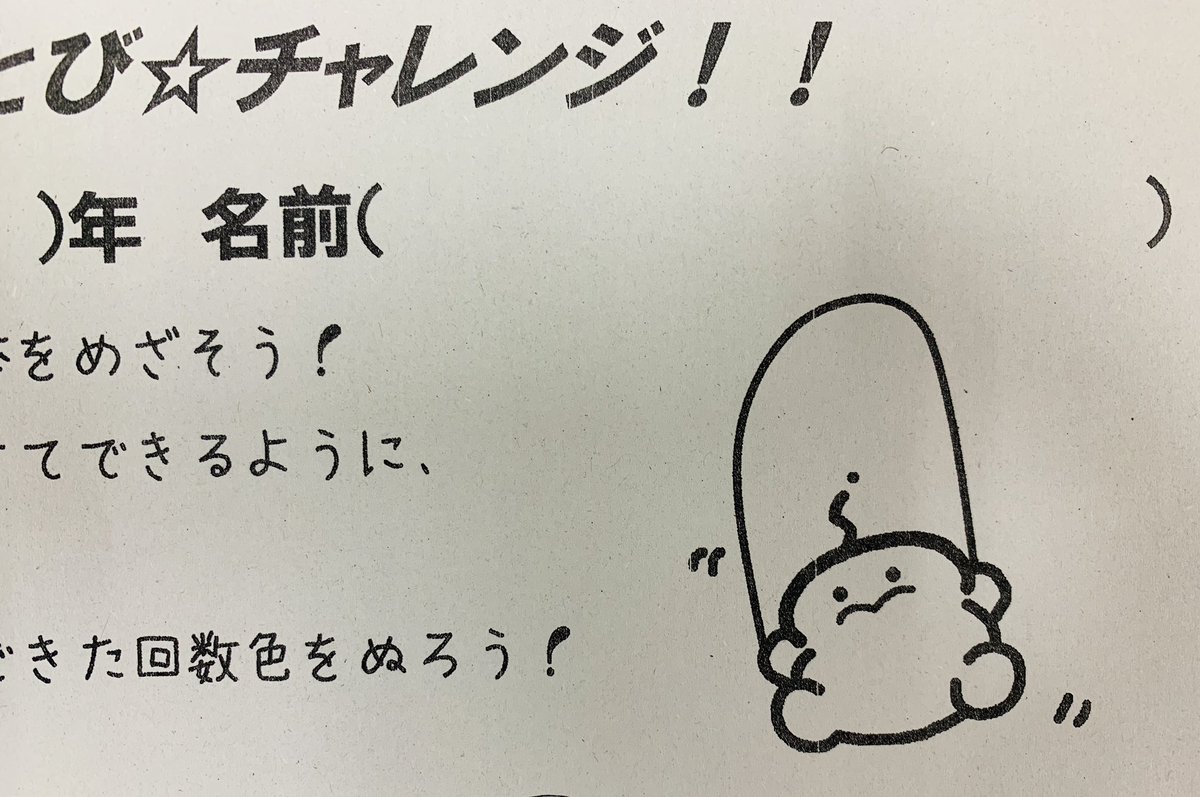 とび☆チャレンジ！！
)年 名前( )
をめざそう！
てできるように、
できた回数色をぬろう！